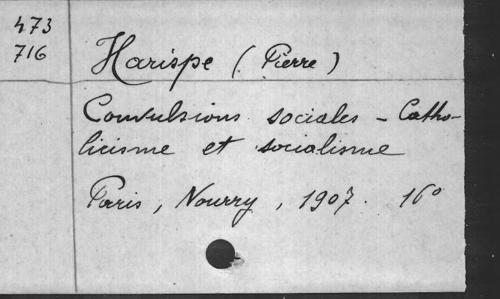 473
716
Harispe (Pierre)
Convulsions sociales - Catho-
licisme et socialisme
Paris, Nourry, 1907. 16º